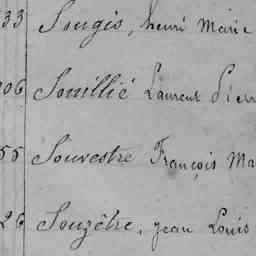 33 Songis, henri Marie
06 Souillié Laurent Pierr
55 Souvestre François Ma
26 Souzêtre, jean Louis